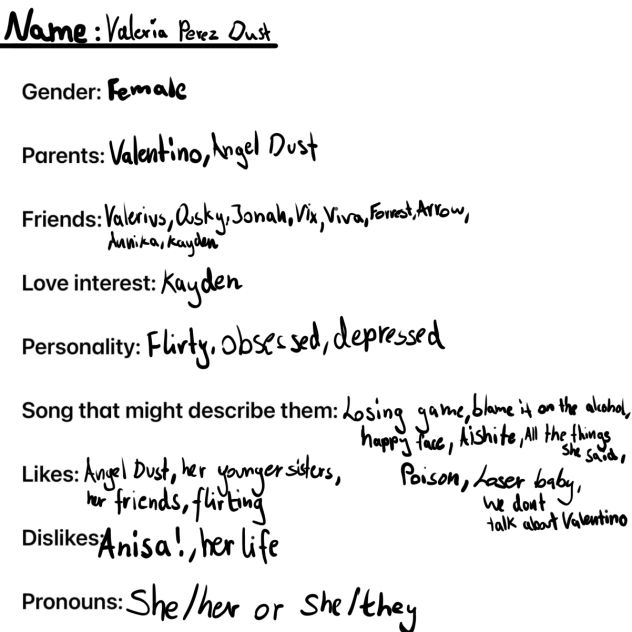 Name: Valeria Perez Dust
Gender: Female
Parents: Valentino, Angel Dust
Friends: Valerius, Dusky, Jonah, Vix, Viva, Forrest, Arrow,
Annika, Kayden
Love interest: Kayden
Personality: Flirty, obsessed, depressed
Song that might describe them: Losing game, blame it on the alcohol,
happy face, Aishite, All the things
She said,
Poison, Loser baby,
we dont
talk about Valentino
Likes: Angel Dust, her younger sisters,
her friends, flirting
Dislikes: Anisa!, her life
Pronouns: She/her or She/they